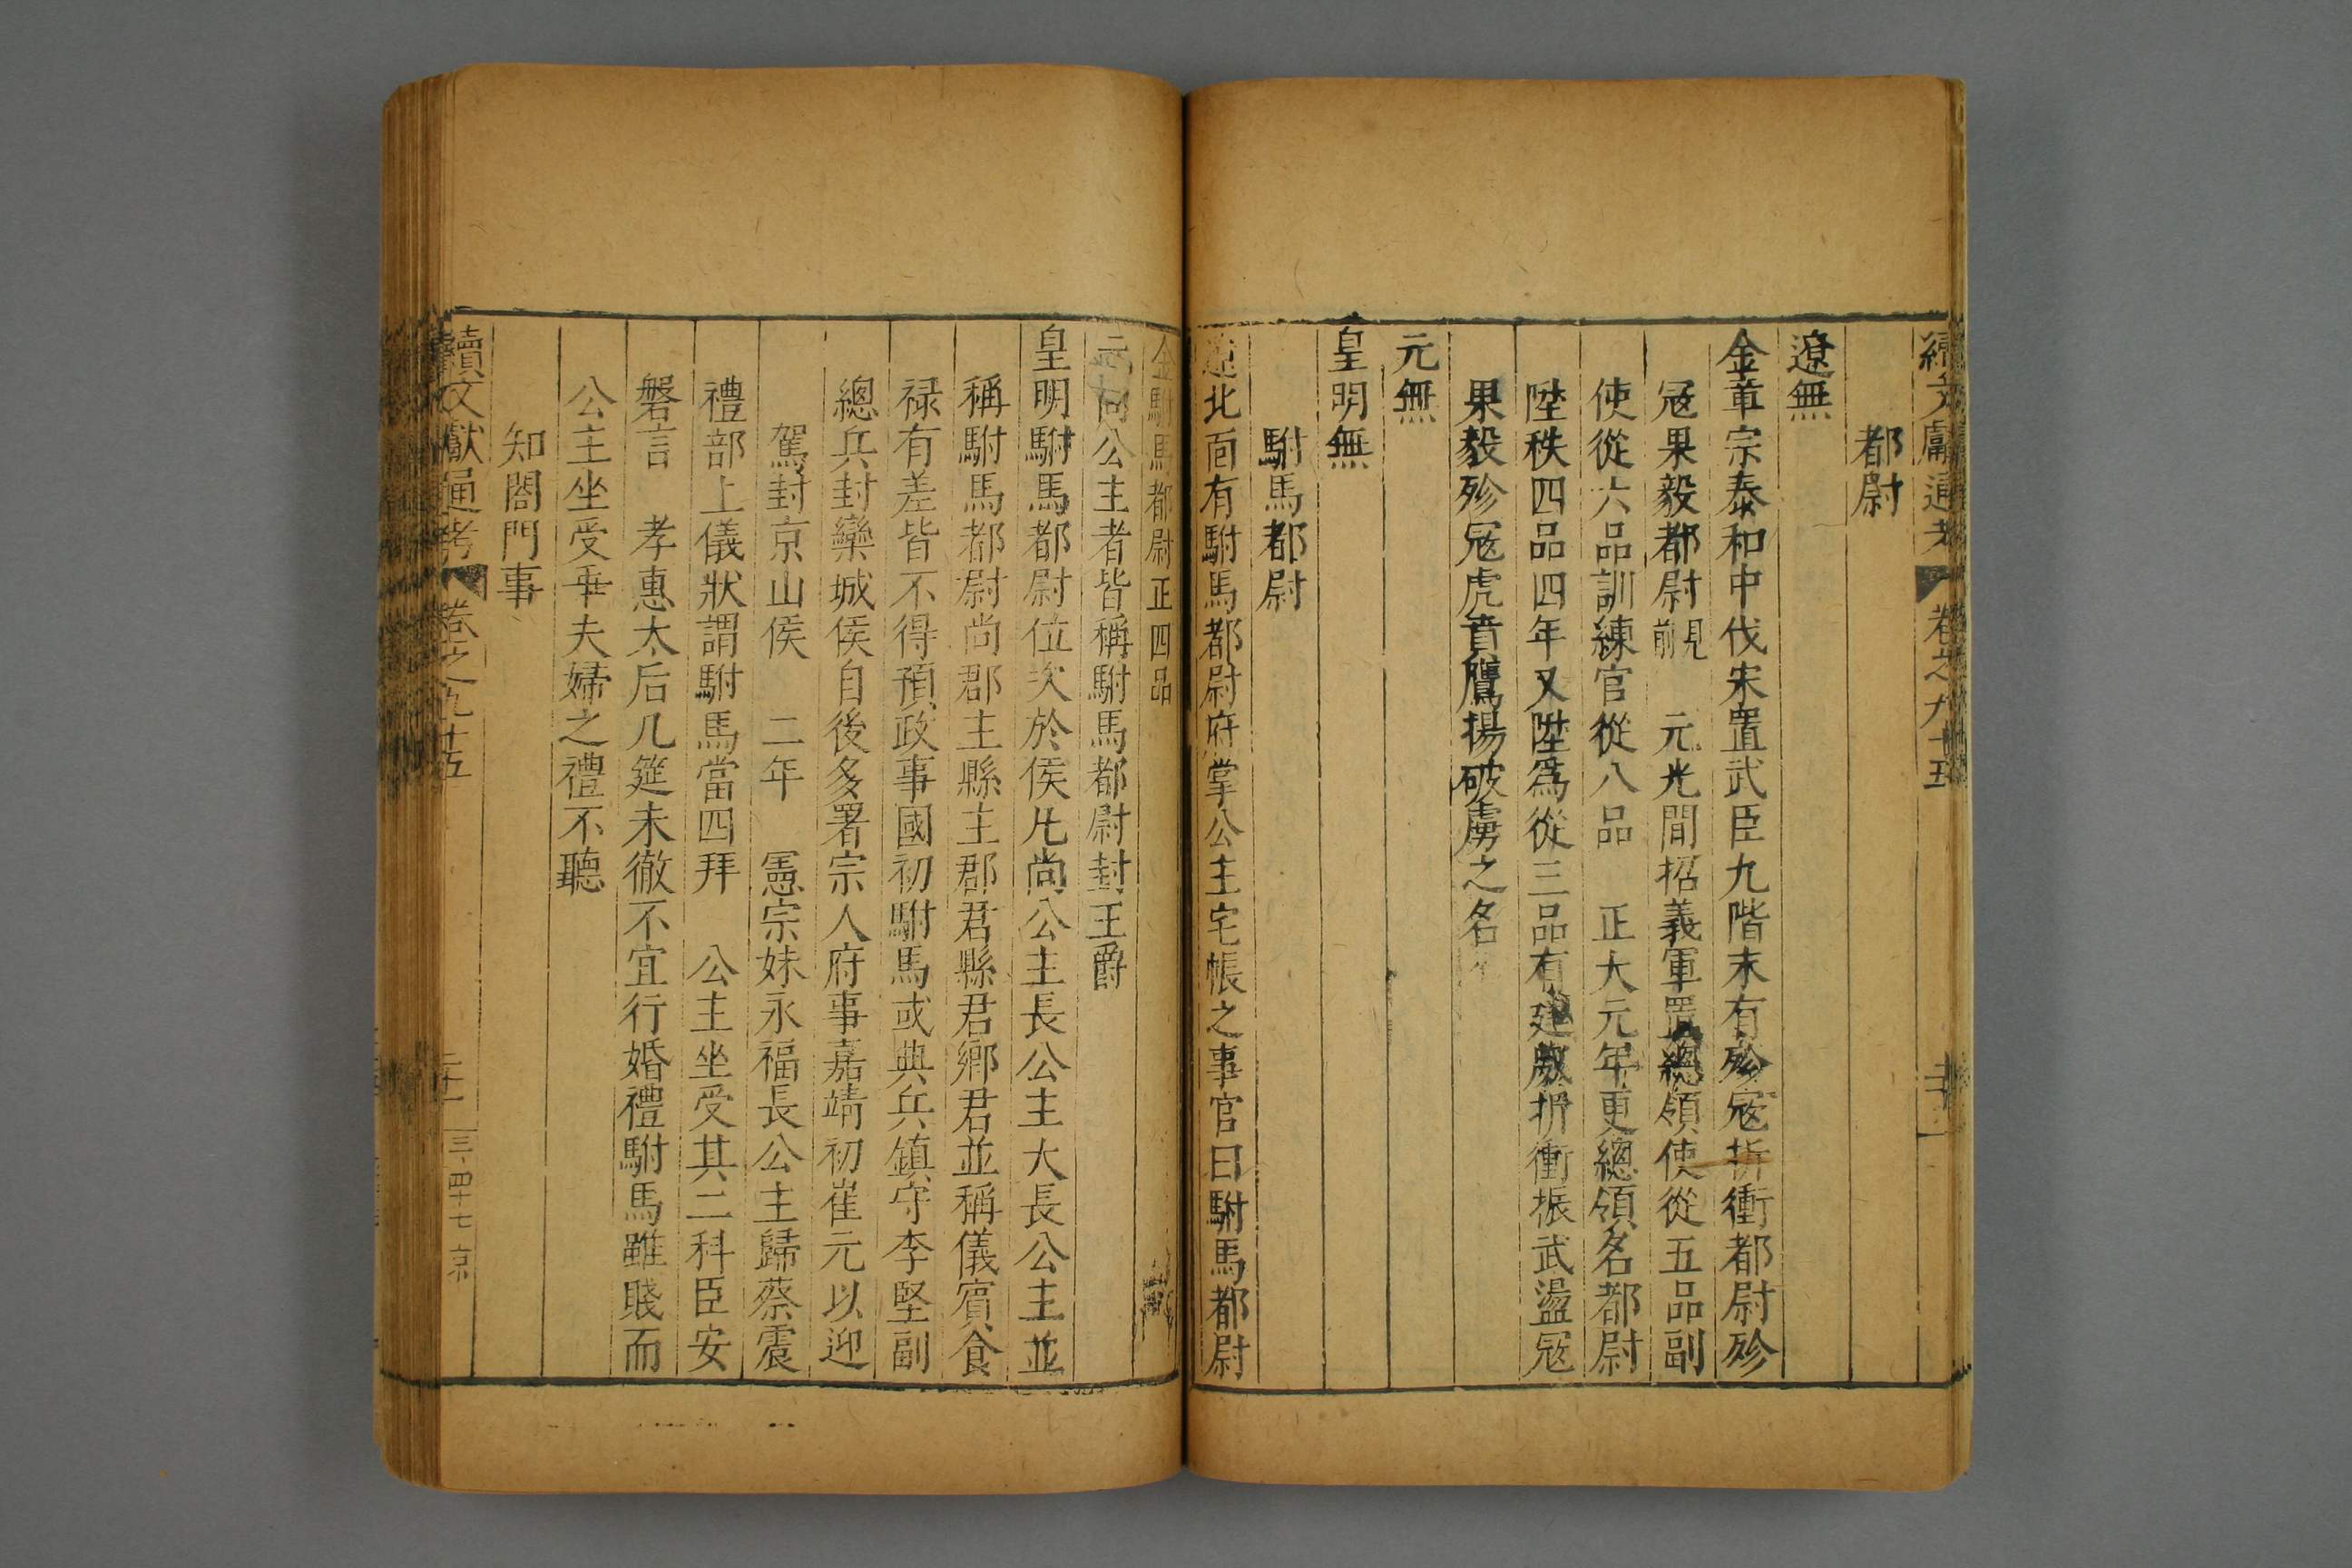 續文獻通考 卷之九十五
都尉
遼無
金章宗泰和中伐宋置武臣九階末有殄寇折衝都尉殄
寇果毅都尉見前 元光間招義軍置總領使從五品副
使從六品訓練官從八品 正大元年更總領名都尉
陞秩四品四年又陞爲從三品有建威折衝振武盪寇
果毅殄寇虎賁鷹揚破虜之名
元無
皇明無
駙馬都尉
遼北面有駙馬都尉府掌公主宅帳之事官曰駙馬都尉
金駙馬都尉正四品
元尚公主者皆稱駙馬都尉封王爵
皇明駙馬都尉位次於侯凡尚公主長公主大長公主並
稱駙馬都尉尚郡主縣主郡君縣君鄉君並稱儀賓食
禄有差皆不得預政事國初駙馬或典兵鎮守李堅副
總兵封欒城侯自後多署宗人府事嘉靖初崔元以迎
駕封京山侯 二年 憲宗妹永福長公主歸蔡震
禮部上儀狀謂駙馬當四拜 公主坐受其二科臣安
磐言 孝惠太后几筵未徹不宜行婚禮駙馬雖賤而
公主坐受乖夫婦之禮不聽
知閤門事
續文獻通考 卷之九十五 三四十七 京